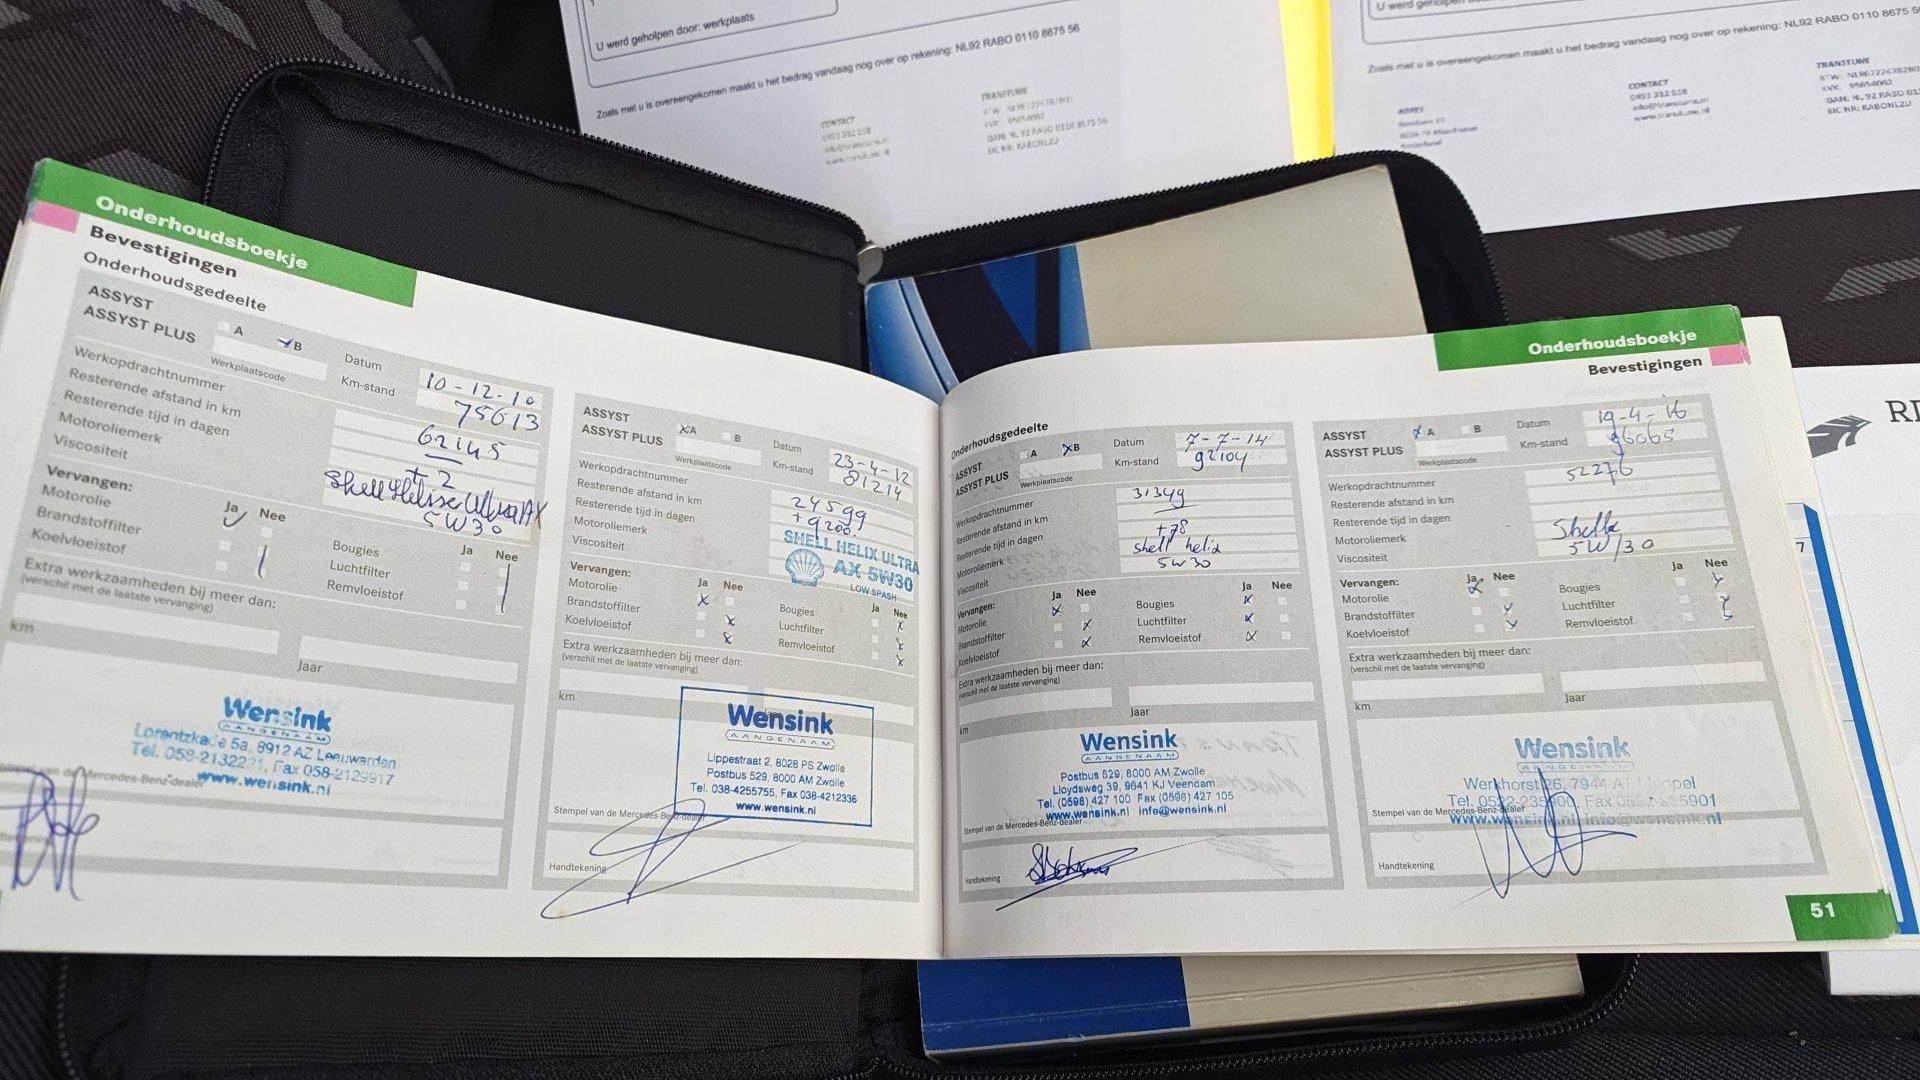 U werd geholpen door: werkplaats
Zoals met u is overeengekomen maakt u het bedrag vandaag nog over op rekening: NL92 RABO 0110 8675 56
CONTACT
0493 312 558
www.transtune.nl
TRANSTUNE
IBAN: NL 92 RABO 0110 8675 56
BIC NR: RABONL2U
U werd geholpen
Zoals met u is overeengekomen maakt u het bedrag vandaag nog over op rekening: NL92 RABO 0110 8675 5
ADRES
CONTACT
0493 312 558
info@transtune.nl
www.transtune.nl
TRANSTUNE
KVK: 95654062
BIC NR: RABONL2U
Onderhoudsboekje
Bevestigingen
Onderhoudsgedeelte
ASSYST
ASSYST PLUS
A B
Werkplaatscode
Datum 10-12-10
Km-stand 75613
Werkopdrachtnummer 62145
Resterende afstand in km
Resterende tijd in dagen + 2
Motoroliemerk Shell Helix Ultra AX
Viscositeit 5W30
Vervangen: Ja Nee
Motorolie
Brandstoffilter
Koelvloeistof
Ja Nee
Bougies
Luchtfilter
Remvloeistof
Extra werkzaamheden bij meer dan:
(verschil met de laatste vervanging)
km
Jaar
Wensink
AANGENAAM
Lorentzkade 5a, 8912 AZ Leeuwarden
Tel. 058-2132221, Fax 058-2129917
www.wensink.nl
Mercedes-Benz-dealer
ASSYST
ASSYST PLUS
A B
Werkplaatscode
Datum 23-4-12
Km-stand 81214
Werkopdrachtnummer 24599
Resterende afstand in km + 9200
Resterende tijd in dagen
Motoroliemerk
Viscositeit
SHELL HELIX ULTRA
AX 5W30
LOW SPASH
Vervangen: Ja Nee
Motorolie
Brandstoffilter
Koelvloeistof
Ja Nee
Bougies
Luchtfilter
Remvloeistof
Extra werkzaamheden bij meer dan:
(verschil met de laatste vervanging)
km
Wensink
AANGENAAM
Lippestraat 2, 8028 PS Zwolle
Postbus 529, 8000 AM Zwolle
Tel. 038-4255755, Fax 038-4212336
www.wensink.nl
Stempel van de Mercedes-Benz-dealer
Handtekening
Onderhoudsboekje
Bevestigingen
Onderhoudsgedeelte
ASSYST
ASSYST PLUS
A B
Werkplaatscode
Datum 7-7-14
Km-stand 92104
Werkopdrachtnummer 31349
Resterende afstand in km
Resterende tijd in dagen +78
Motoroliemerk shell helix
Viscositeit 5w30
Vervangen: Ja Nee
Motorolie
Brandstoffilter
Koelvloeistof
Ja Nee
Bougies
Luchtfilter
Remvloeistof
Extra werkzaamheden bij meer dan:
(verschil met de laatste vervanging)
km
Jaar
Wensink
AANGENAAM
Postbus 529, 8000 AM Zwolle
Lloydsweg 39, 9641 KJ Veendam
Tel. (0598) 427 100 Fax (0598) 427 105
www.wensink.nl info@wensink.nl
Stempel van de Mercedes-Benz-dealer
Handtekening
ASSYST
ASSYST PLUS
A B
Werkplaatscode
Datum 19-4-16
Km-stand 96065
Werkopdrachtnummer 52276
Resterende afstand in km
Resterende tijd in dagen
Motoroliemerk Shell
Viscositeit 5W/30
Vervangen: Ja Nee
Motorolie
Brandstoffilter
Koelvloeistof
Ja Nee
Bougies
Luchtfilter
Remvloeistof
Extra werkzaamheden bij meer dan:
(verschil met de laatste vervanging)
km
Jaar
Wensink
AANGENAAM
Werkhorst 26, 7944 AT Meppel
Tel. 0522-235900, Fax 0522-235901
www.wensink.nl info@wensink.nl
Stempel van de Mercedes-Benz-dealer
Handtekening
51
7